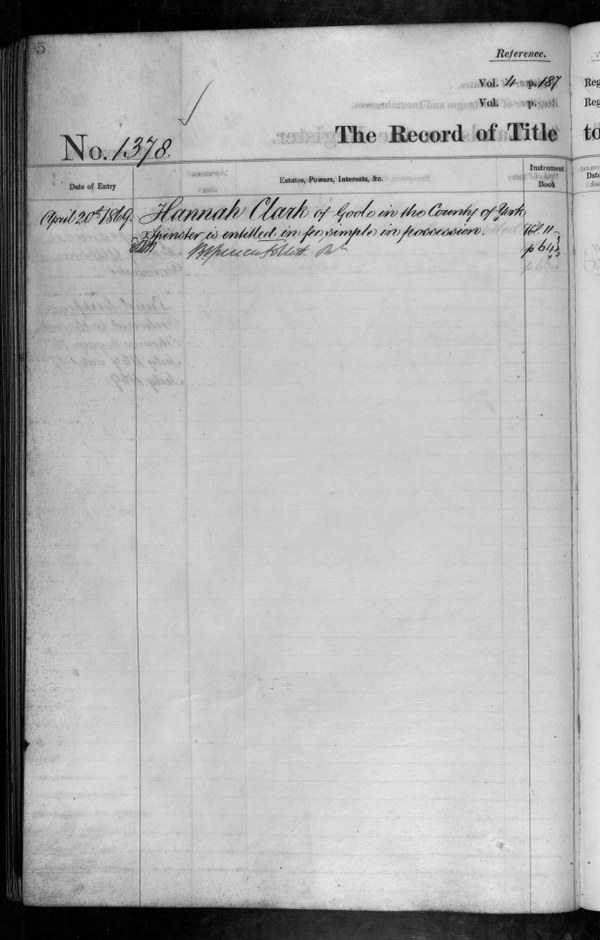 5
Reference.
Vol. 4 p. 187
Vol. p.
No. 1378.
The Record of Title
Date of Entry
Estates, Powers, Interests, &c.
Instrument
Book
April 20th 1869. Hannah Clark of Goole in the County of York
Spinster is entitled in fee simple in possession.
Vol. 11
p 64
Reg
Reg
to
Dat